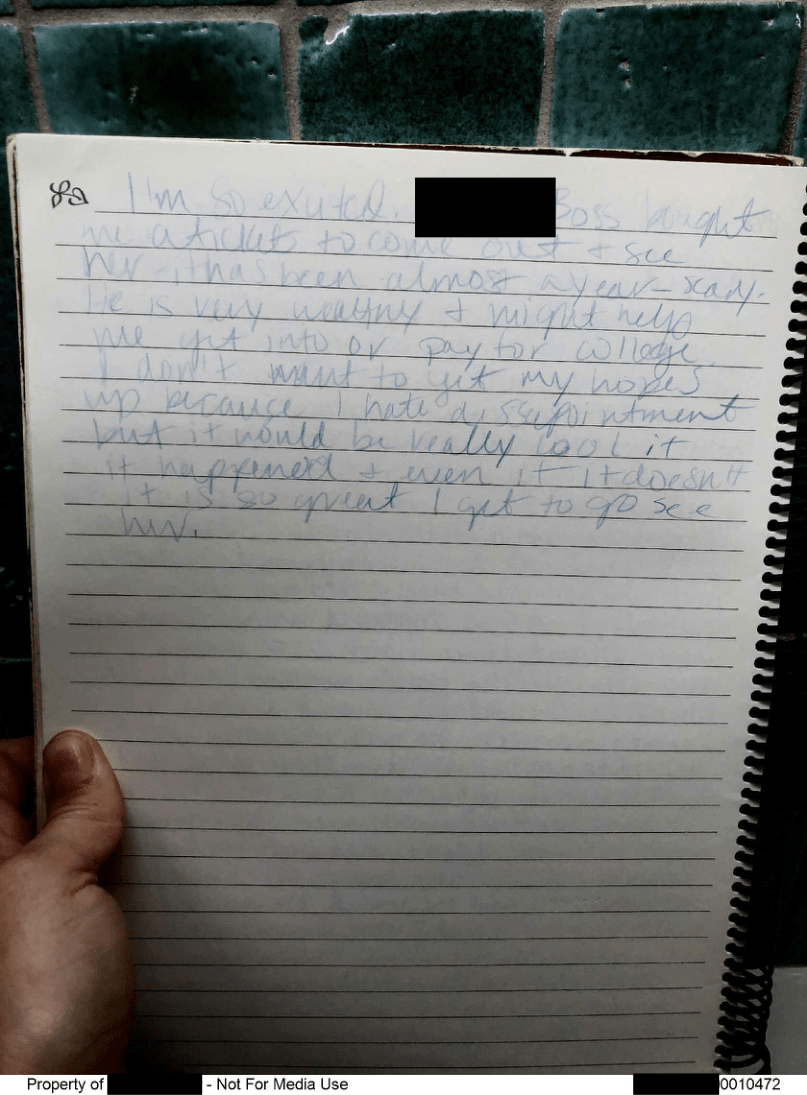 I'm so exited. Boss bought
me a ticket to come out + see
her - it has been almost a year - scary.
He is very wealthy + might help
me get into or pay for college.
I don't want to get my hopes
up because I hate dissapointment
but it would be really cool if
it happened + even if it doesn't
it is so great I get to go see
her.
Property of - Not For Media Use
0010472